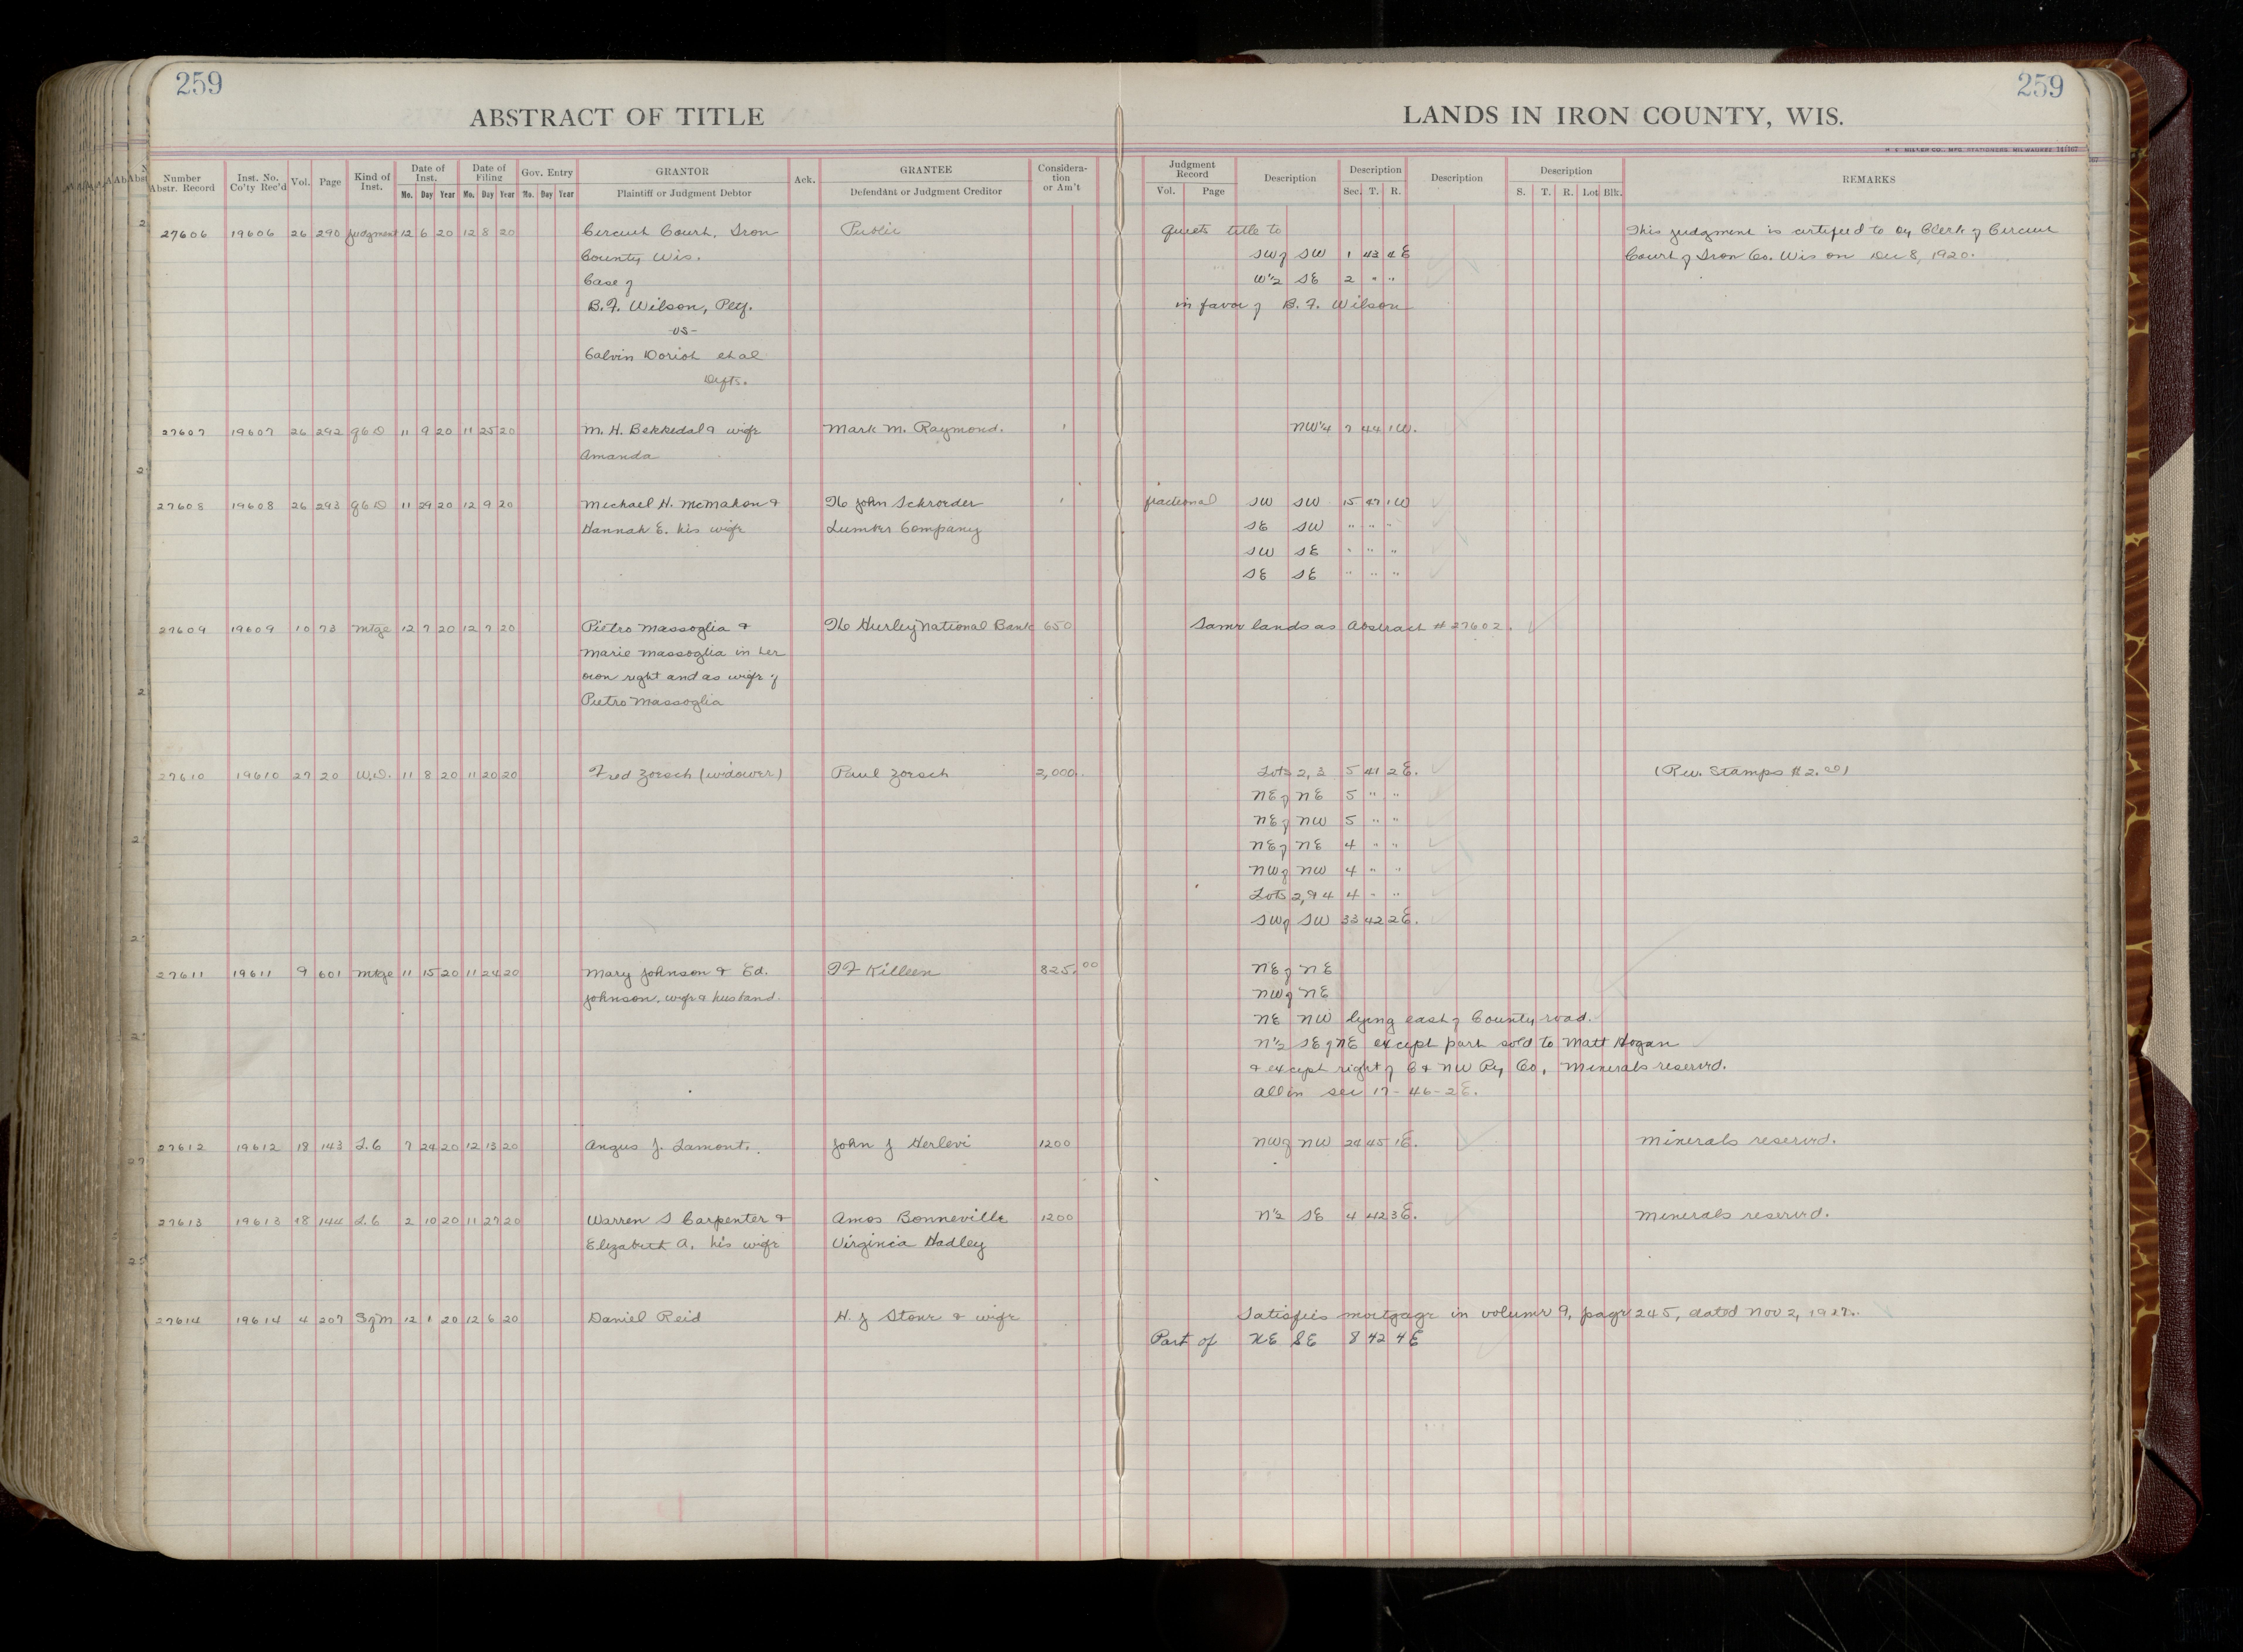 259 259
ABSTRACT OF TITLE LANDS IN IRON COUNTY, WIS.
H. C. MILLER CO., MFG. STATIONERS, MILWAUKEE
Number Abstr. Record Inst. No. Co'ty Rec'd Vol. Page Kind of Inst. Date of Inst. Mo. Day Year Date of Filing Mo. Day Year Gov. Entry Mo. Day Year GRANTOR Plaintiff or Judgment Debtor Ack. GRANTEE Defendant or Judgment Creditor Considera-tion or Am't Judgment Record Vol. Page Description Description Sec. T. R. Description Description S. T. R. Lot Blk. REMARKS
27606 19606 26 290 Judgment 12 6 20 12 8 20 Circuit Court, Iron Public Quiets title to This judgment is certified to by Clerk of Circuit
County Wis. SW of SW 1 43 4 E Court of Iron Co. Wis on Dec 8, 1920.
Case of W½ SE 2 " "
B. F. Wilson, Pltf. in favor of B. F. Wilson
-vs-
Calvin Doriot et al
Defts.
27607 19607 26 292 QCD 11 9 20 11 25 20 M. H. Bekkedal & wife Mark M. Raymond. 1 NW¼ 7 44 1 W.
Amanda
27608 19608 26 293 QCD 11 29 20 12 9 20 Michael H. McMahon & The John Schroeder 1 fractional SW SW 15 47 1 W
Hannah E. his wife Lumber Company SE SW " " "
SW SE " " "
SE SE " " "
27609 19609 10 73 Mtge 12 7 20 12 7 20 Pietro Massoglia & The Hurley National Bank 650 Same lands as Abstract # 27602.
Marie Massoglia in her
own right and as wife of
Pietro Massoglia
27610 19610 27 20 W.D. 11 8 20 11 20 20 Fred Zoesch (widower) Paul Zoesch 2,000 Lots 2, 3 5 41 2 E. (Rev. Stamps $2.00)
NE of NE 5 " "
NE of NW 5 " "
NE of NE 4 " "
NW of NW 4 " "
Lots 2, & 4 4 " "
SW of SW 33 42 2 E.
27611 19611 9 601 Mtge 11 15 20 11 24 20 Mary Johnson & Ed. T F Killeen 825.00 NE of NE
Johnson, wife & husband. NW of NE
NE NW lying east of County road.
N½ SE of NE except part sold to Matt Hogan
& except right of C & NW Ry Co, Minerals reserved.
All in sec 17-46-2E.
27612 19612 18 143 L.C 7 24 20 12 13 20 Angus J. Lamont. John J Herlevi 1200 NW of NW 24 45 1E. Minerals reserved.
27613 19613 18 144 L.C 2 10 20 11 27 20 Warren S Carpenter & Amos Bonneville 1200 N½ SE 4 42 3 E. Minerals reserved.
Elizabeth A. his wife Virginia Hadley
27614 19614 4 207 S of M 12 1 20 12 6 20 Daniel Reid H. J Stone & wife Satisfies mortgage in volume 9, page 245, dated Nov 2, 1917.
Part of NE SE 8 42 4 E